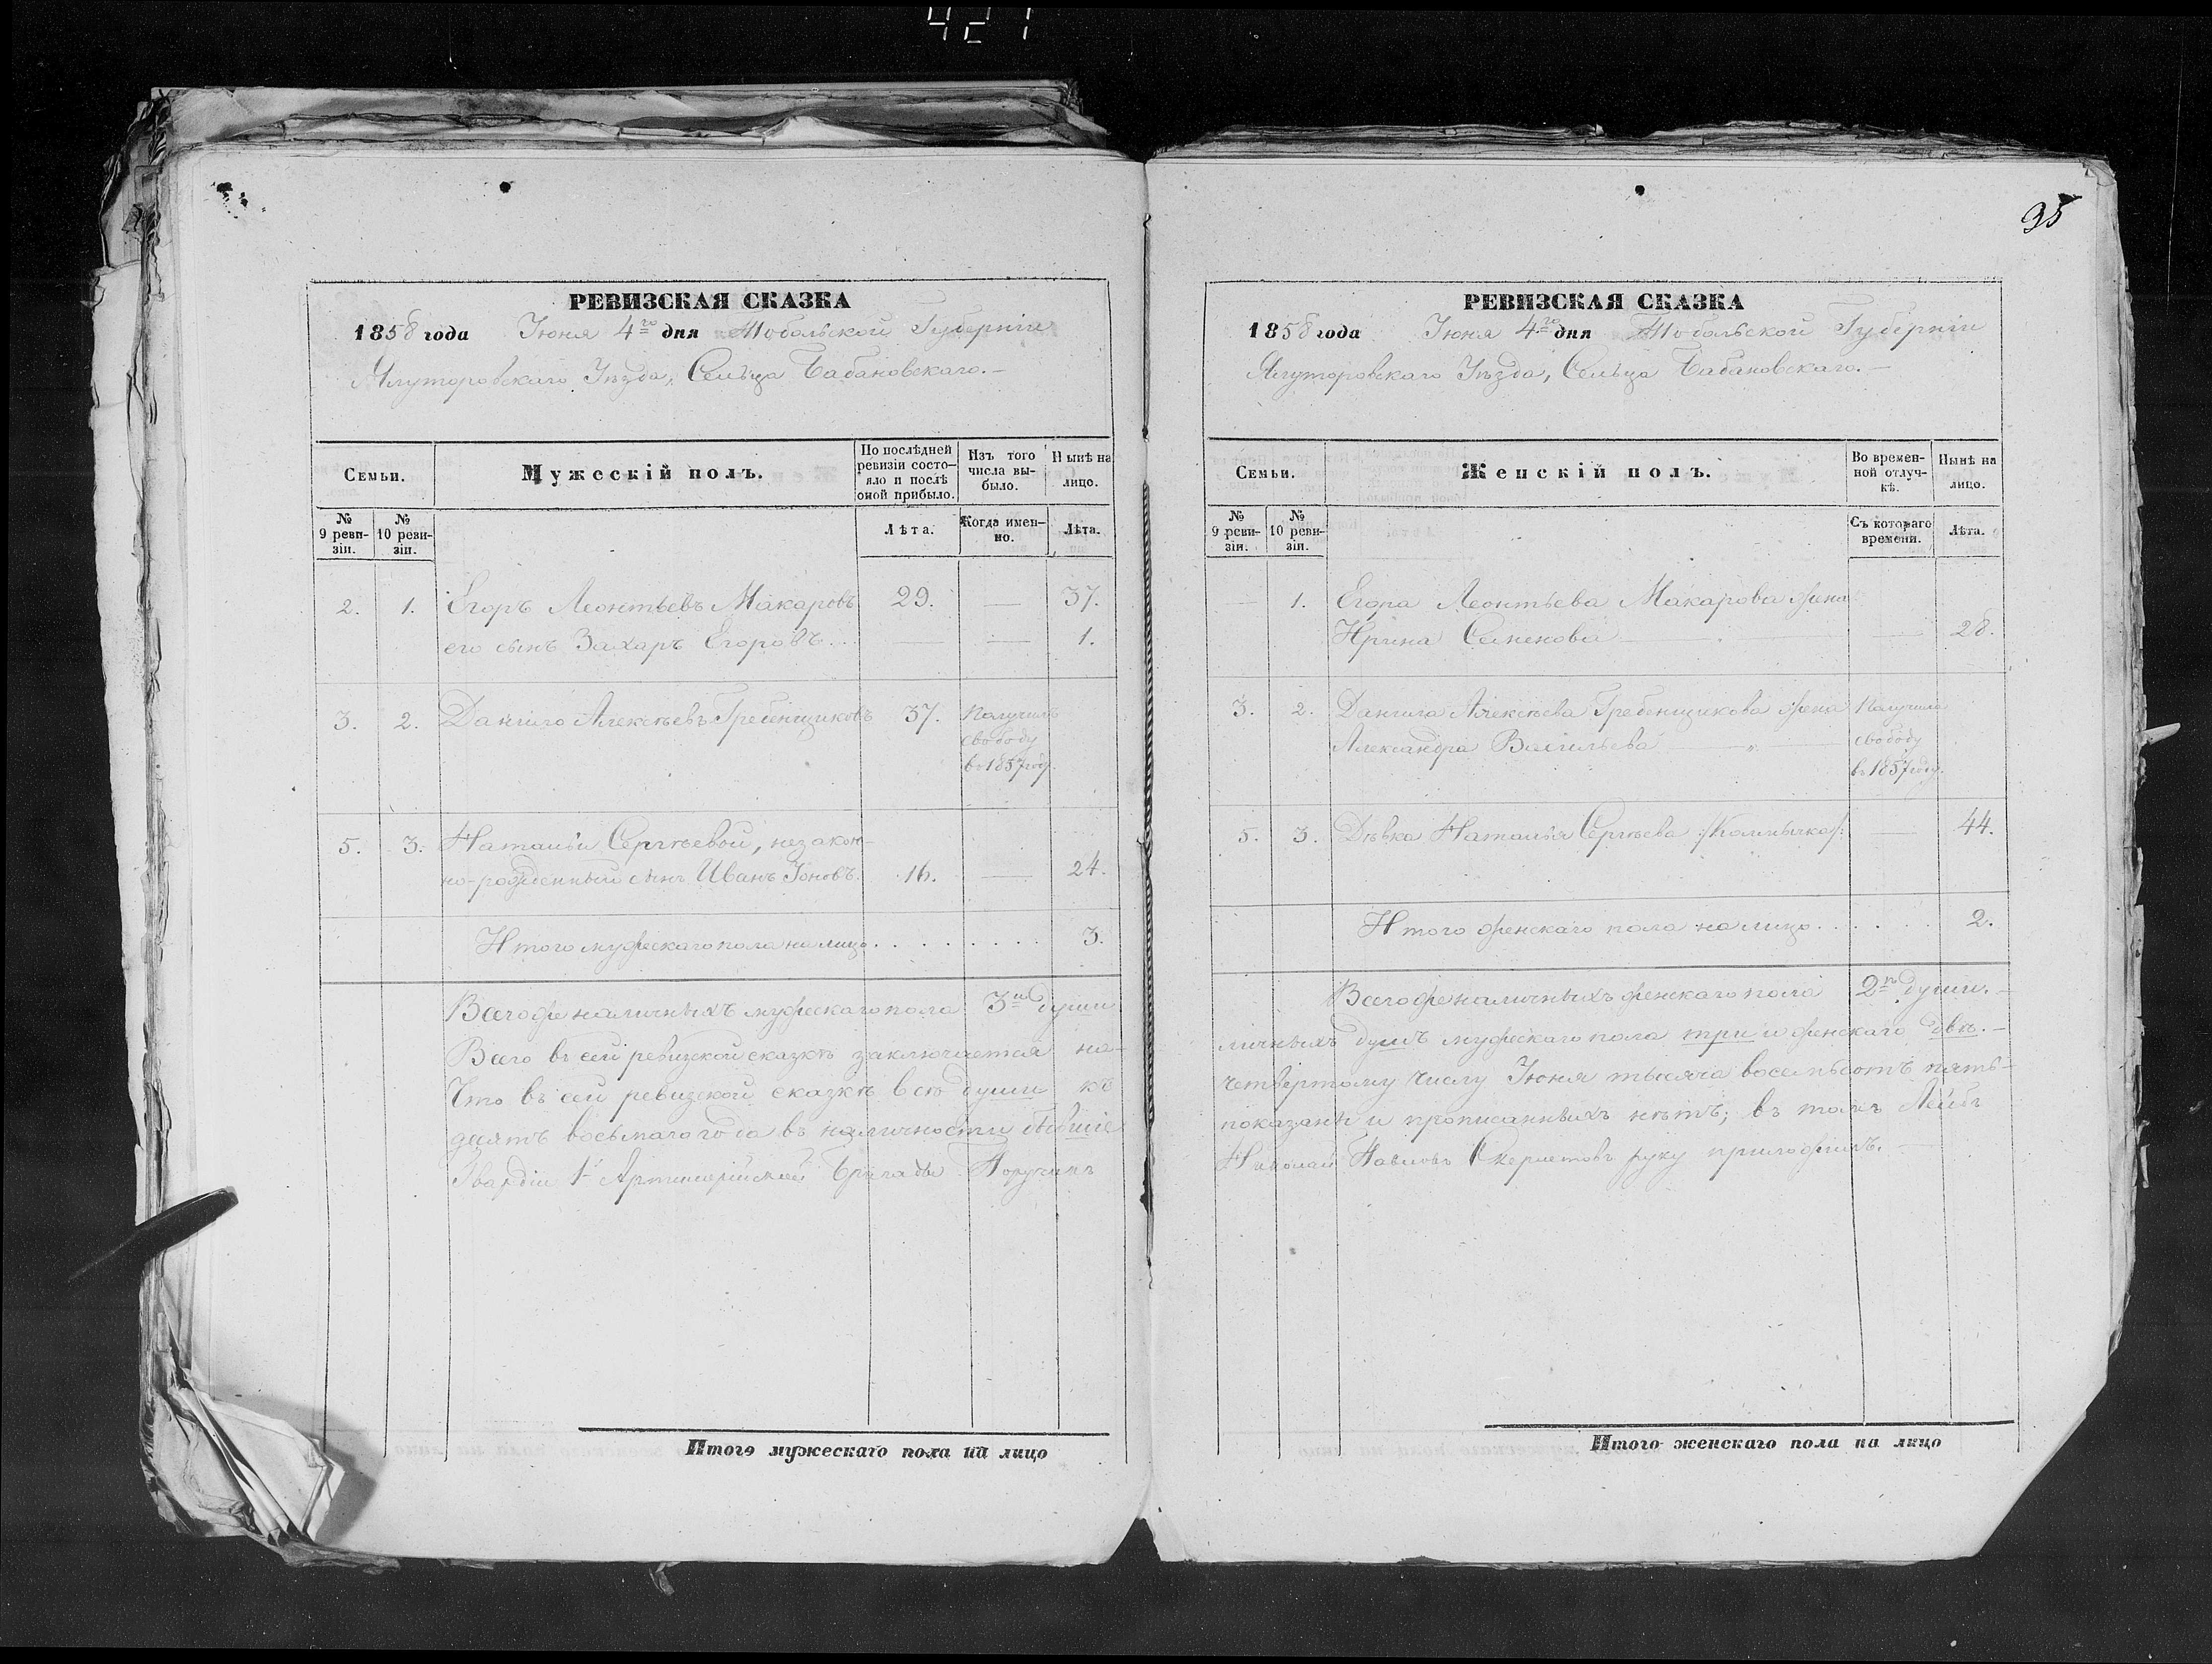 421
РЕВИЗСКАЯ СКАЗКА
1858 года Іюня 4го дня Тобольской Губерніи
Ялуторовскаго Уѣзда, Сельца Бабановскаго.
Семьи.
Мужескій полъ.
По послѣдней ревизіи состояло и послѣ оной прибыло.
Изъ того числа выбыло.
Нынѣ на лицо.
№ 9 ревизіи.
№ 10 ревизіи.
Лѣта.
Когда именно.
Лѣта.
2. 1. Егоръ Леонтьевъ Макаровъ 29. — 37.
его сынъ Захаръ Егоровъ — — 1.
3. 2. Данило Алексѣевъ Гребенщиковъ 37. Получилъ
свободу
въ 1857 году.
5. 3. Натальи Сергѣевой, незакон-
но-рожденный сынъ Иванъ Іоновъ. 16. — 24.
Итого мужескаго пола на лицо . . . . . . . . 3.
Всего же наличныхъ мужескаго пола 3и души
Всего въ сей ревизской сказкѣ заключается на-
Что въ сей ревизской сказкѣ всѣ души къ
десятъ восьмаго года въ наличности бывшіе
Гвардіи 1й Артиллерійской Бригады Поручикъ
Итого мужескаго пола на лицо
95
РЕВИЗСКАЯ СКАЗКА
1858 года Іюня 4го дня Тобольской Губерніи
Ялуторовскаго Уѣзда, Сельца Бабановскаго.
Семьи.
Женскій полъ.
Во временной отлучкѣ.
Нынѣ на лицо.
№ 9 ревизіи.
№ 10 ревизіи.
Съ котораго времени.
Лѣта.
— 1. Егора Леонтьева Макарова жена
Ирина Семенова — — 28.
3. 2. Данила Алексѣева Гребенщикова жена Получила
Александра Васильева — „ — свободу
въ 1857 году.
5. 3. Дѣвка Наталья Сергѣева /:Калмычка/: — 44.
Итого женскаго пола на лицо . . . . . . 2.
Всего же наличныхъ женскаго пола 2ѣ души.
личныхъ душъ мужескаго пола три и женскаго двѣ.
четвертому числу Іюня тысяча восемьсотъ пять-
показаны и прописанныхъ нѣтъ; въ томъ Лейбъ
Николай Павловъ Скерлетовъ руку приложилъ.
Итого женскаго пола на лицо